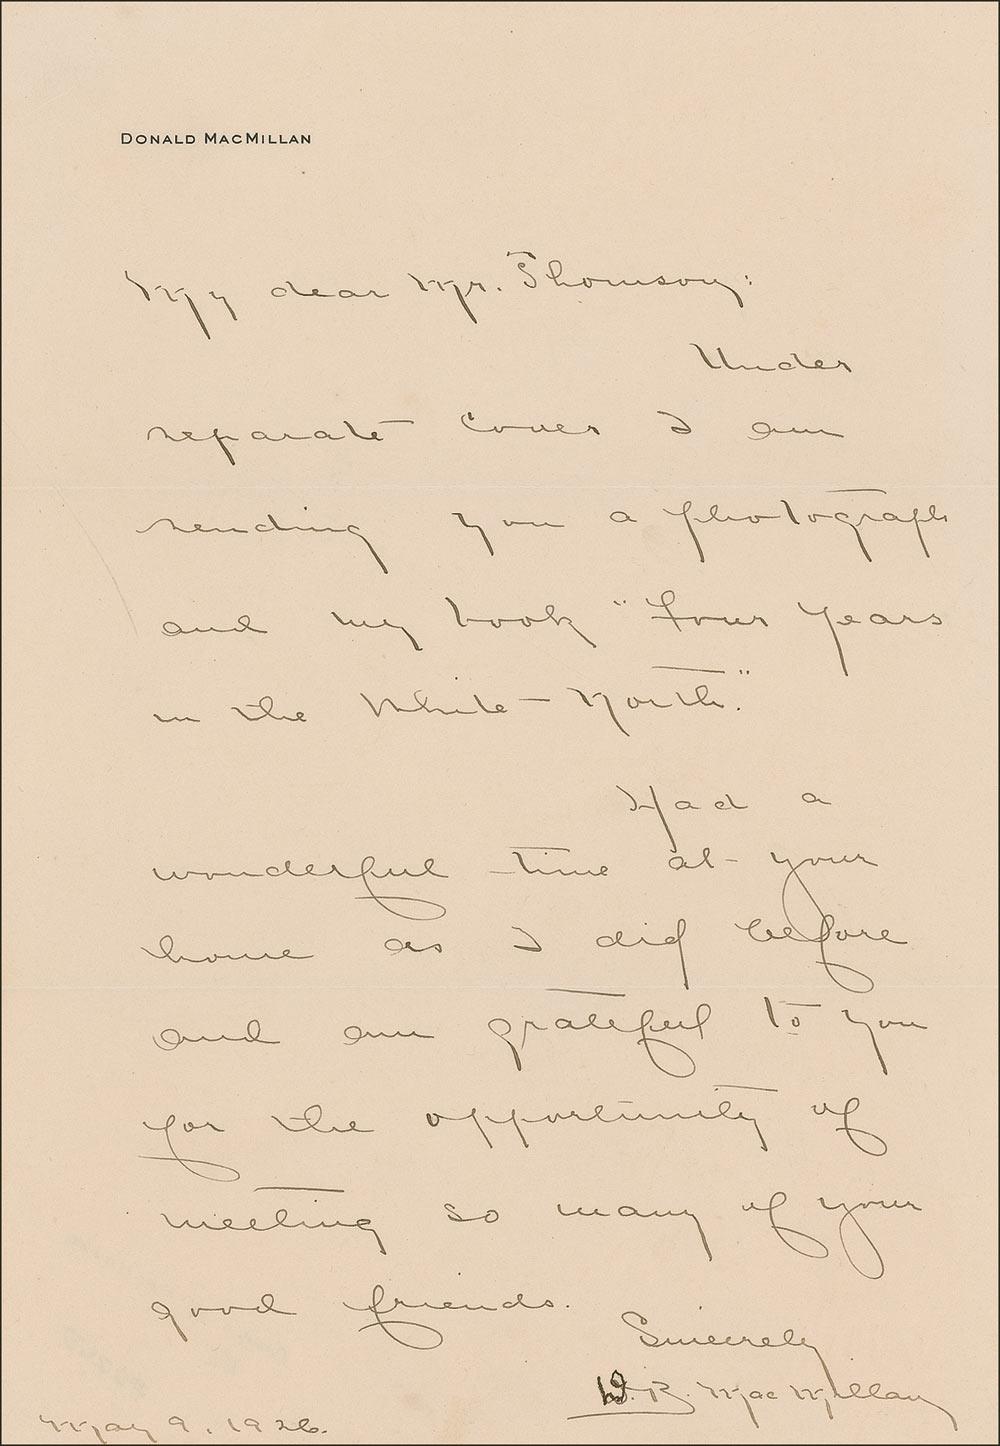 DONALD MACMILLAN
My dear Mr. Thomson:
Under
separate cover I am
sending you a photograph
and my book "Four Years
in the White-North."
Had a
wonderful time at your
home as I did before
and am grateful to you
for the opportunity of
meeting so many of your
good friends.
Sincerely
D. B. MacMillan
May 9, 1926.